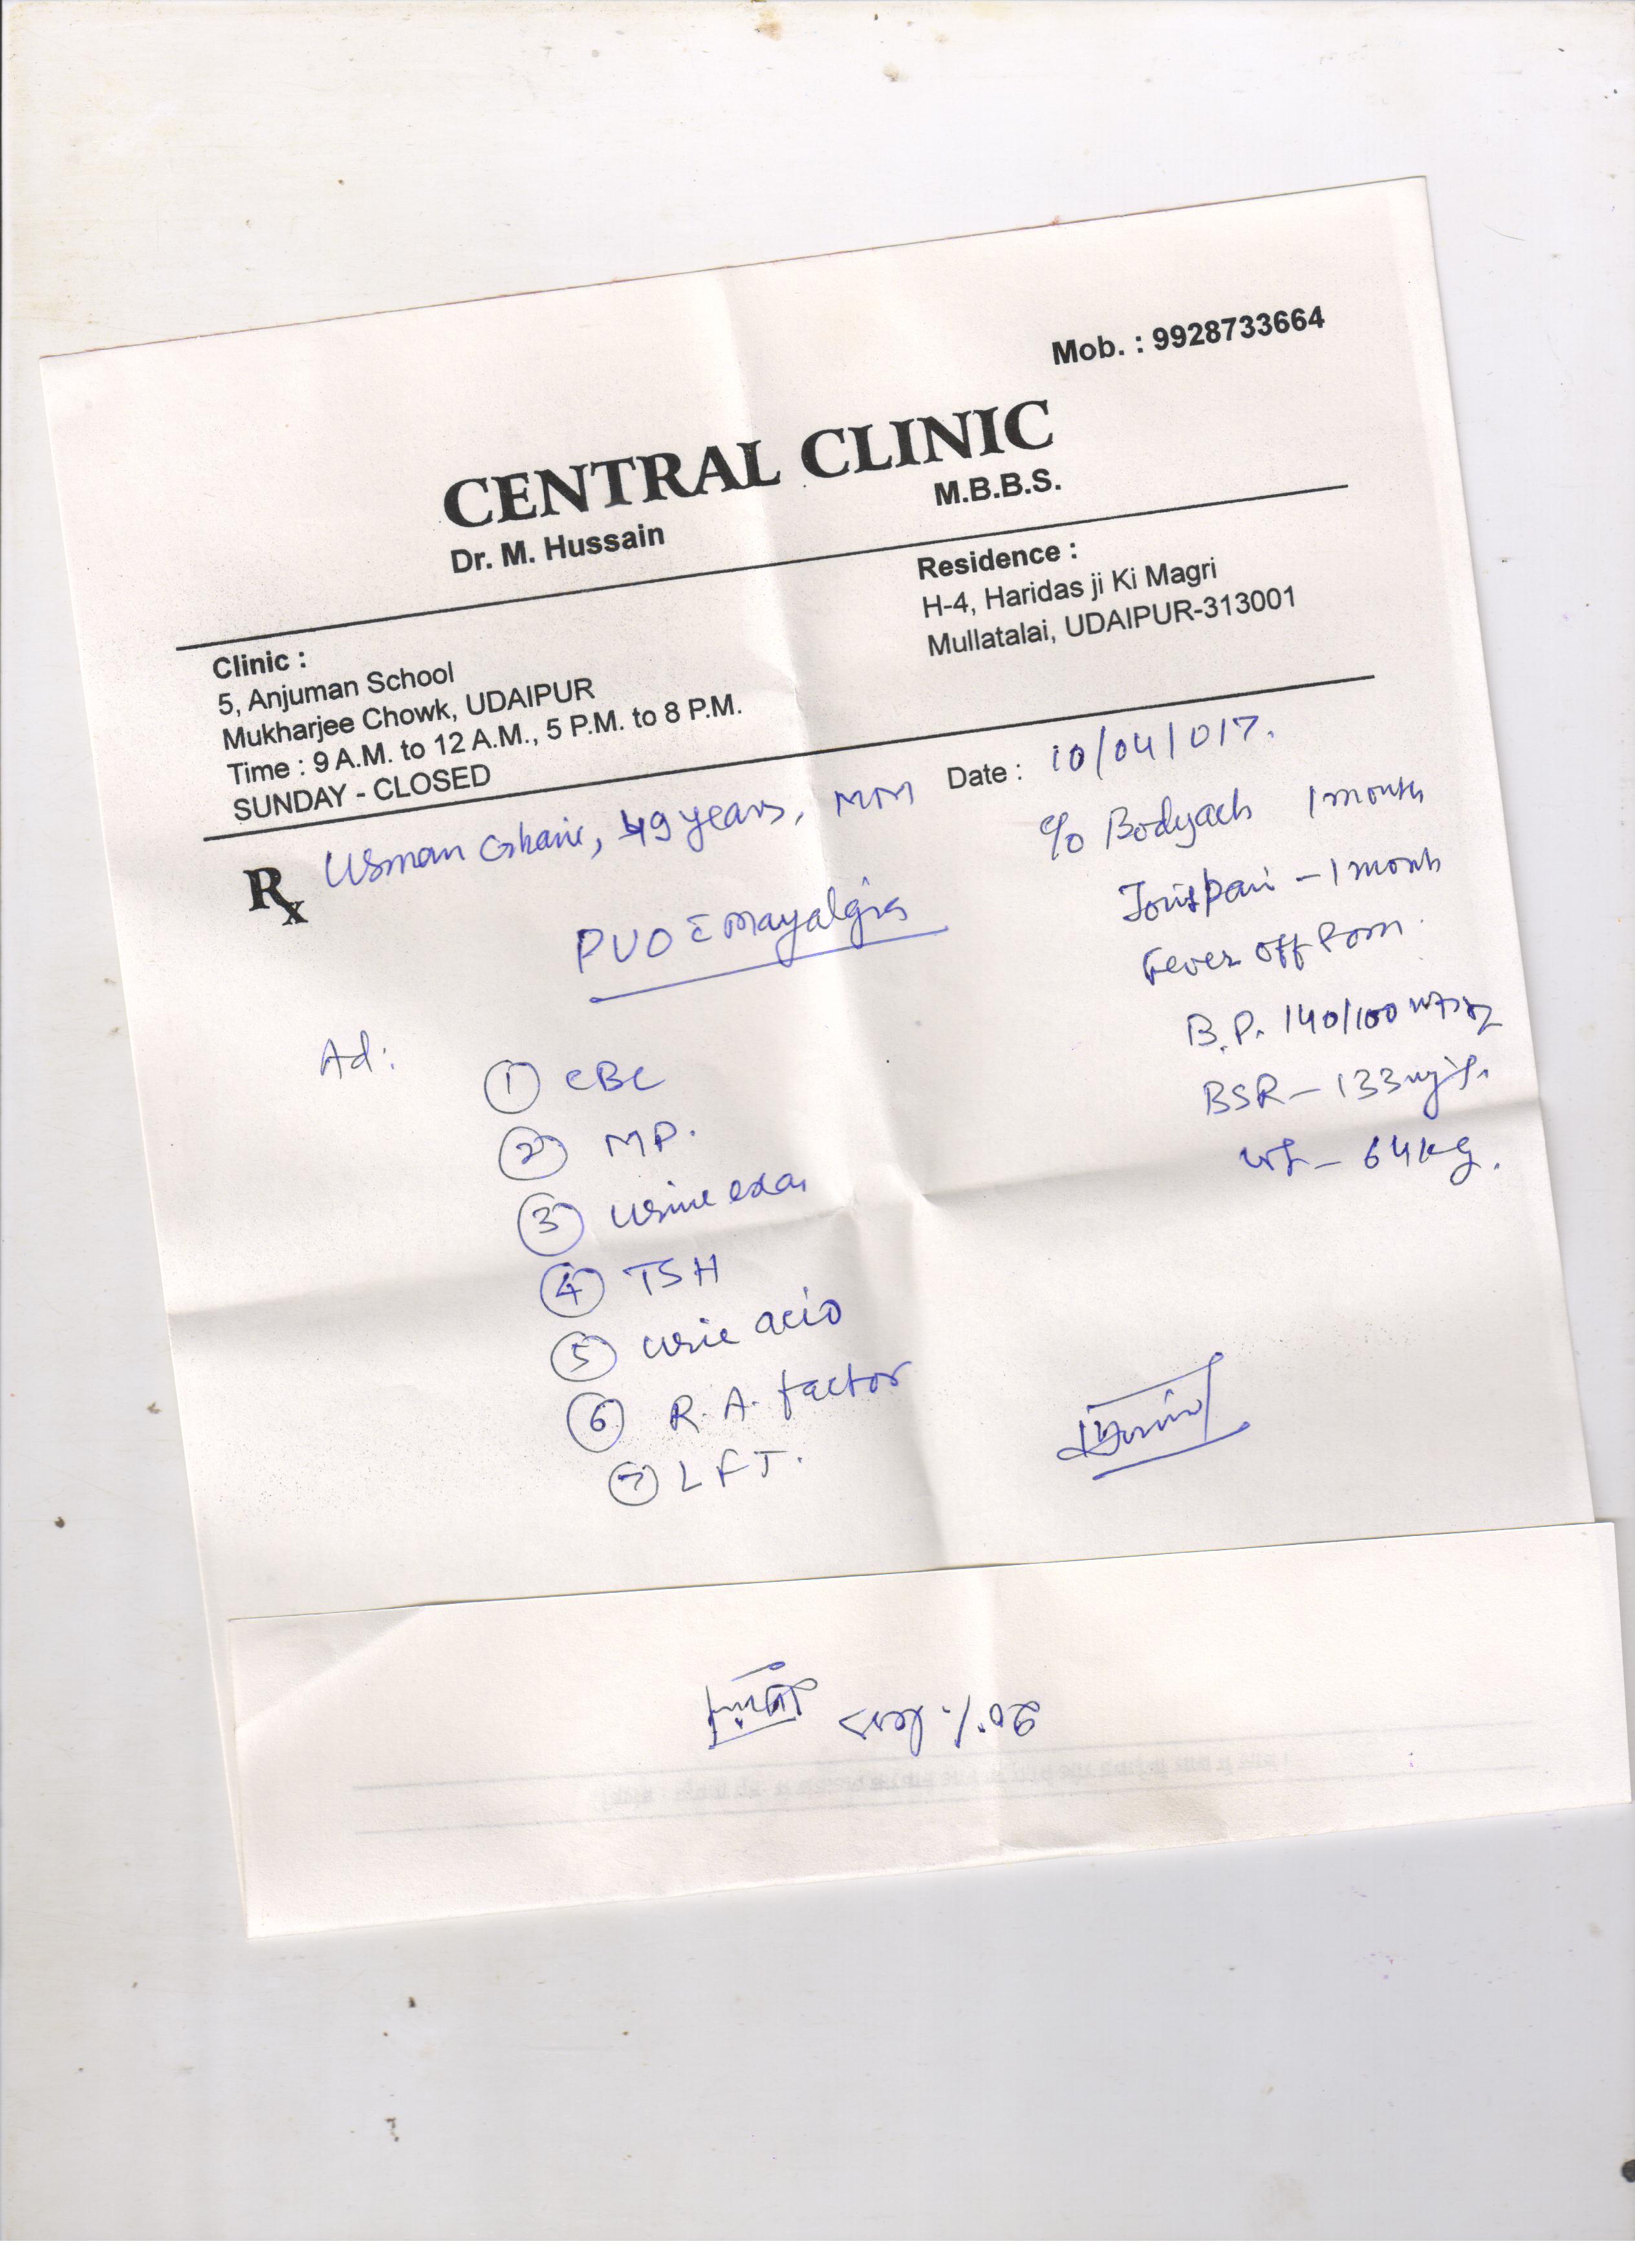 Mob. : 9928733664
CENTRAL CLINIC
Dr. M. Hussain M.B.B.S.
Clinic :
5, Anjuman School
Mukharjee Chowk, UDAIPUR
Time : 9 A.M. to 12 A.M., 5 P.M. to 8 P.M.
SUNDAY - CLOSED
Residence :
H-4, Haridas ji Ki Magri
Mullatalai, UDAIPUR-313001
Date : 10/04/017.
Rx Usman Ghani, 49 years, MM
PUO c̄ mayalgia
c/o Bodyach 1 month
Joint pain - 1 month
Fever off &
B.P. 140/100
BSR - 133 mg%.
wt - 64 kg.
Ad:
① CBC
② MP.
③ Urine exa,
④ TSH
⑤ Uric acid
⑥ R.A. factor
⑦ LFT.
20%. less